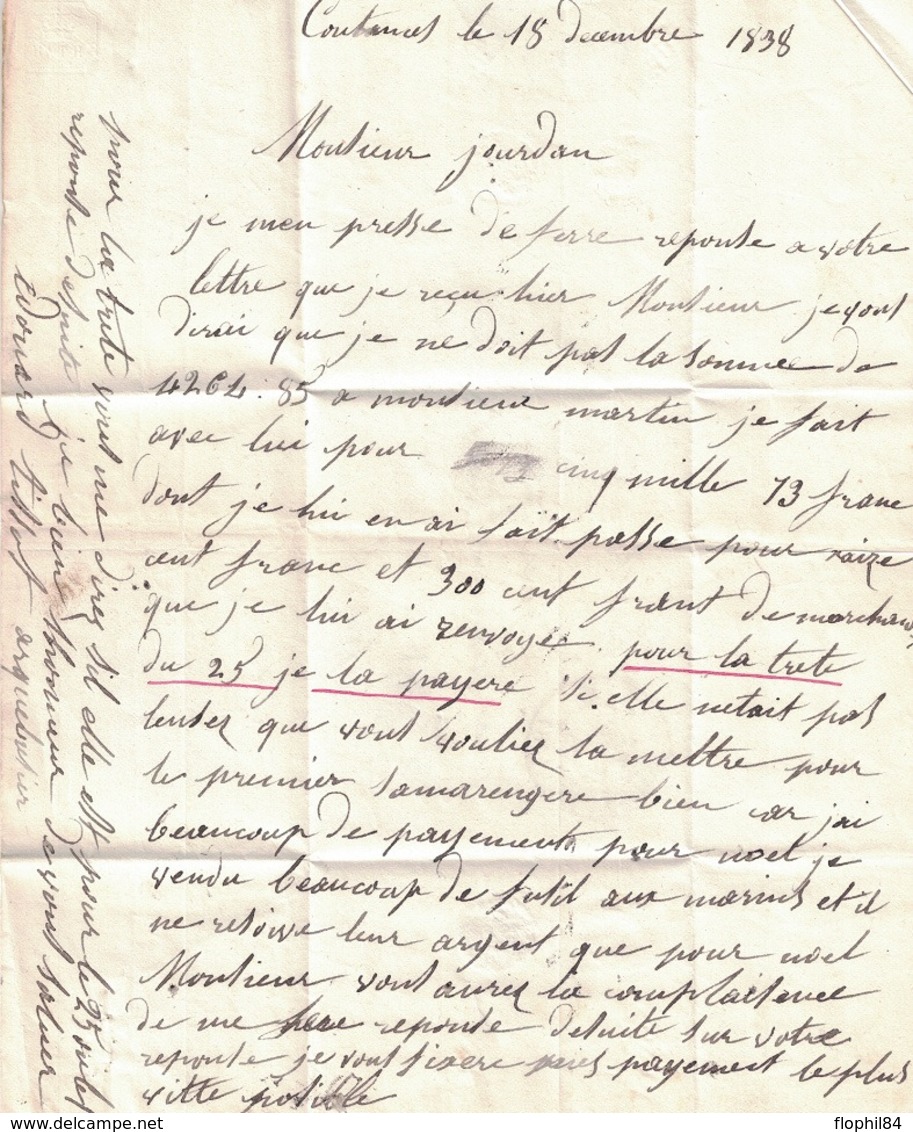 Coutances le 18 decembre 1838
Monsieur jourdan
je men presse de ferre reponse a votre
lettre que je reçu hier Monsieur je vous
dirai que je ne doit pas la somme de
4264.85 a monsieur martin je fait
avec lui pour cinq mille 73 franc
dont je lui en ai fait passe pour saize
cent franc et 300 cent frant de marchand
que je lui ai renvoyee pour la trete
du 25 je la payere si elle netait pas
lentez que vous vouliez la mettre pour
le premier samarengere bien car jai
beaucoup de payement pour noel je
vendu beaucoup de fusil aux marins et il
ne resoive leur argent que pour noel
Monsieur vous aurez la complaisence
de me fere reponse desuite sur votre
reponse je vous fixere mes payement le plus
vitte posible
pour la trete vous me dires sil elle est pour le 25 ou le 1
reponse desuite je bien lhonneur de vous saluer
edouard tissot arquebusier
flophil84